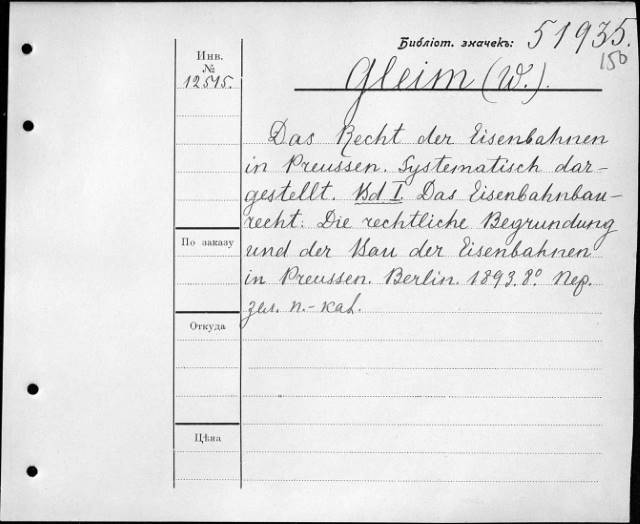 Библіот. значекъ: 51935.
150
Инв.
№
12515.
Gleim (W.).
Das Recht der Eisenbahnen
in Preussen. Systematisch dar-
gestellt. Bd I. Das Eisenbahnbau-
recht: Die rechtliche Begrundung
und der Bau der Eisenbahnen
in Preussen. Berlin. 1893. 8º. Пер.
зел. п.-каl.
По заказу
Откуда
Цѣна